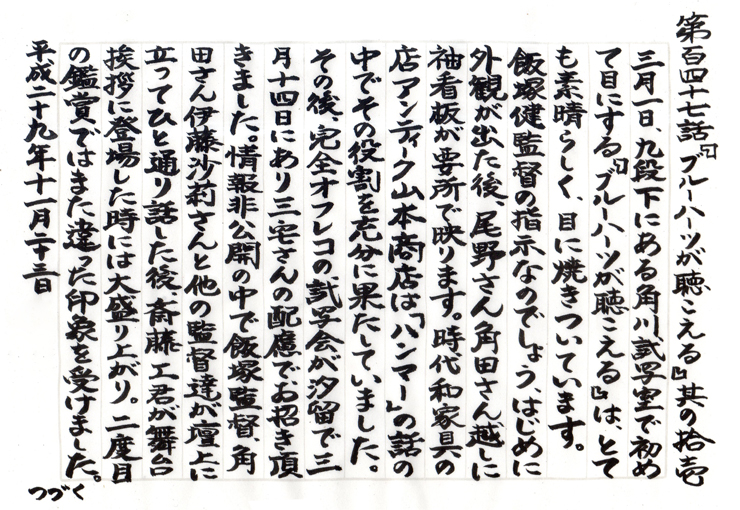 第百四十七話『ブルーハーツが聴こえる』其の拾壱
三月一日、九段下にある角川試写室で初め
て目にする『ブルーハーツが聴こえる』は、とて
も素晴らしく、目に焼きついています。
飯塚健監督の指示なのでしょう、はじめに
外観が出た後、尾野さん角田さん越しに
袖看板が要所で映ります。時代和家具の
店アンティーク山本商店は「ハンマー」の話の
中でその役割を充分に果たしていました。
その後、完全オフレコの試写会が汐留で三
月十四日にあり三宅さんの配慮でお招き頂
きました。情報非公開の中で飯塚監督、角
田さん伊藤沙莉さんと他の監督達が壇上に
立ってひと通り話した後、斎藤工君が舞台
挨拶に登場した時には大盛り上がり。二度目
の鑑賞ではまた違った印象を受けました。
平成二十九年十一月二十三日
つづく